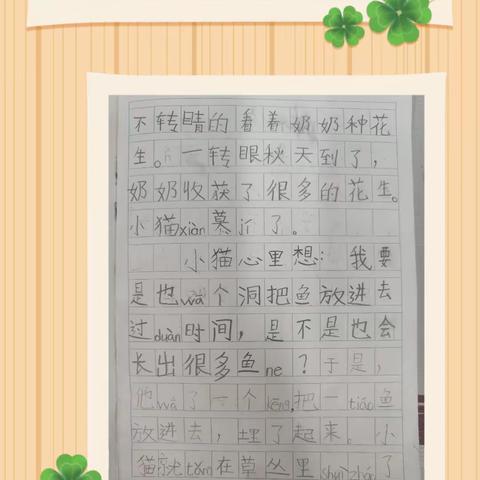 不转睛的看着奶奶种花
生。一转眼秋天到了，
奶奶收获了很多的花生。
小猫xiàn慕jí了。
小猫心里想：我要
是也wā个洞把鱼放进去
过duàn时间，是不是也会
长出很多鱼ne？于是，
他wā了一个kēng，把一tiáo鱼
放进去，埋了起来。小
猫就tǎng在草丛里shuì zháo了